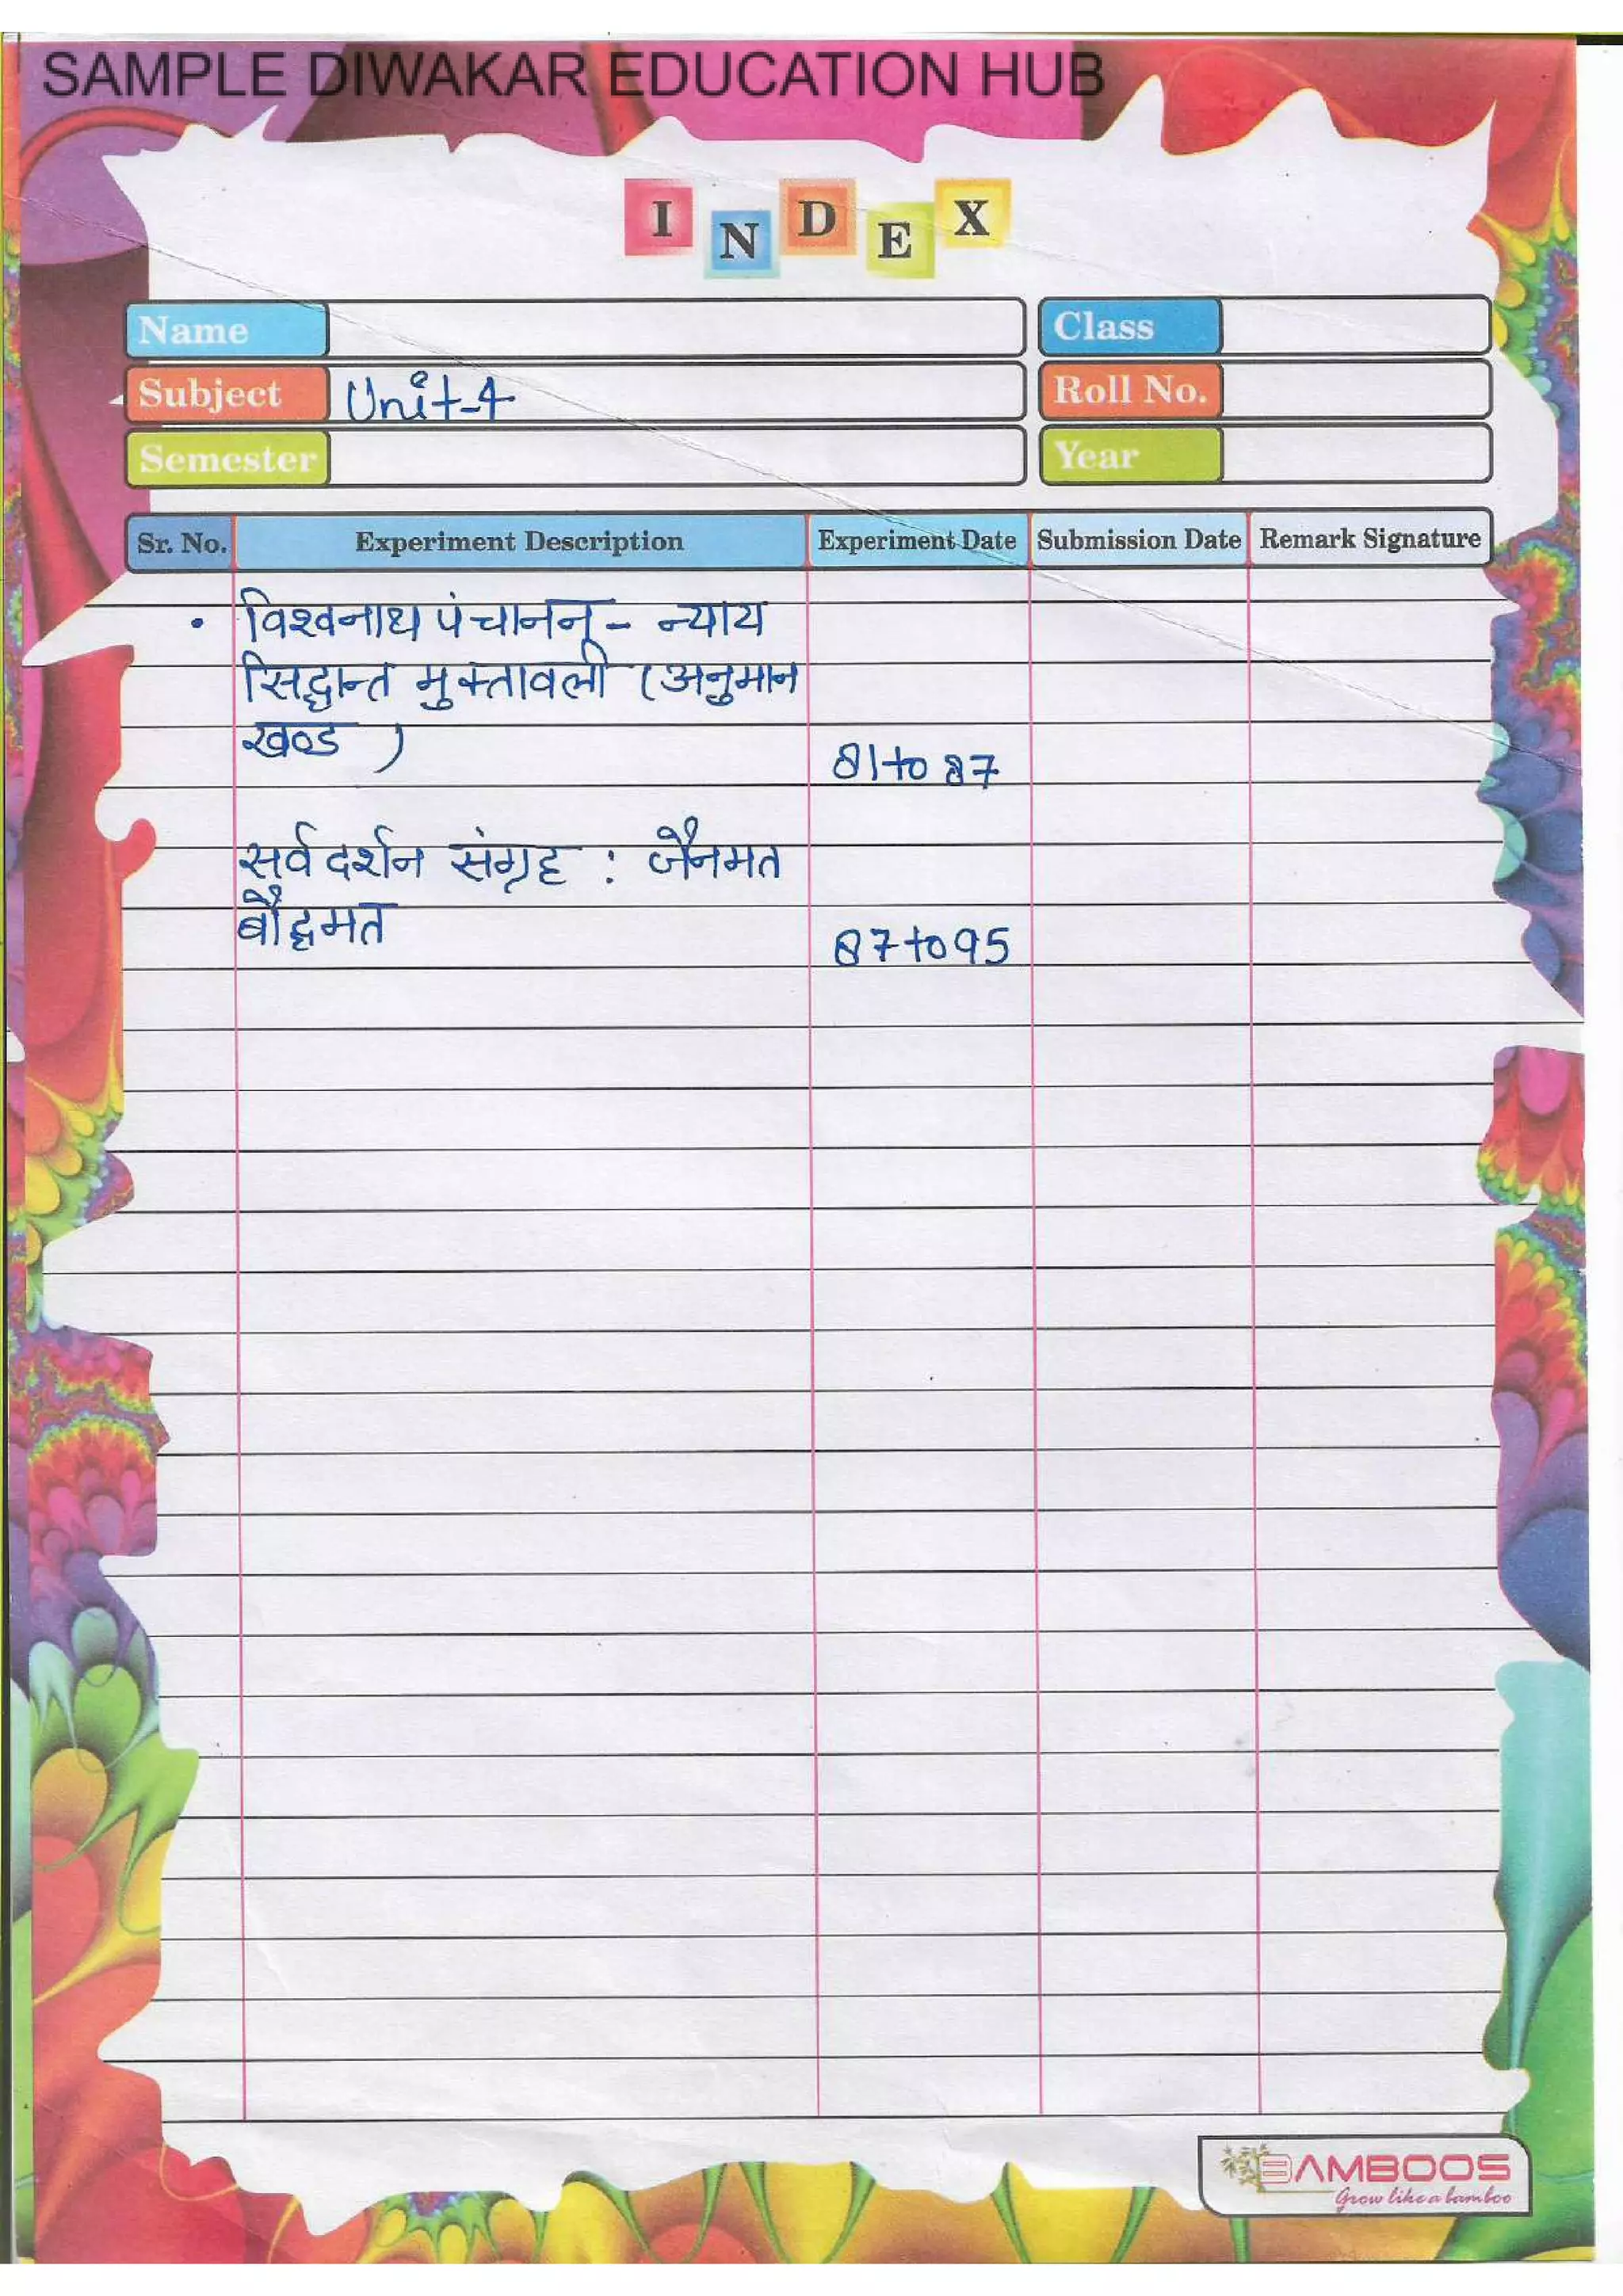 SAMPLE DIWAKAR EDUCATION HUB
INDEX
Name
Class
Subject Unit-4
Roll No.
Semester
Year
Sr. No. Experiment Description Experiment Date Submission Date Remark Signature
• विश्वनाथ पंचानन् - न्याय
सिद्धान्त मुक्तावली (अनुमान
खण्ड ) 81 to 87
सर्व दर्शन संग्रह : जैनमत
बौद्धमत 87 to 95
BAMBOOS
Grow like a bamboo